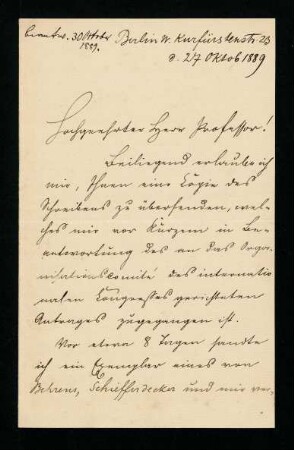 beantw. 30 Octbr
1889.
Berlin W. Kurfürstenstr. 23
d. 27 Oktob 1889
Hochgeehrter Herr Professor!
Beiliegend erlaube ich
mir, Ihnen eine Copie des
Schreibens zu übersenden, wel-
ches mir vor Kurzem in Be-
antwortung des an das Orga-
nisationscomité des internatio-
nalen Congresses gerichteten
Antrages zugegangen ist.
Vor etwa 8 Tagen sandte
ich ein Exemplar eines von
Behrens, Schiefferdecker und mir ver-